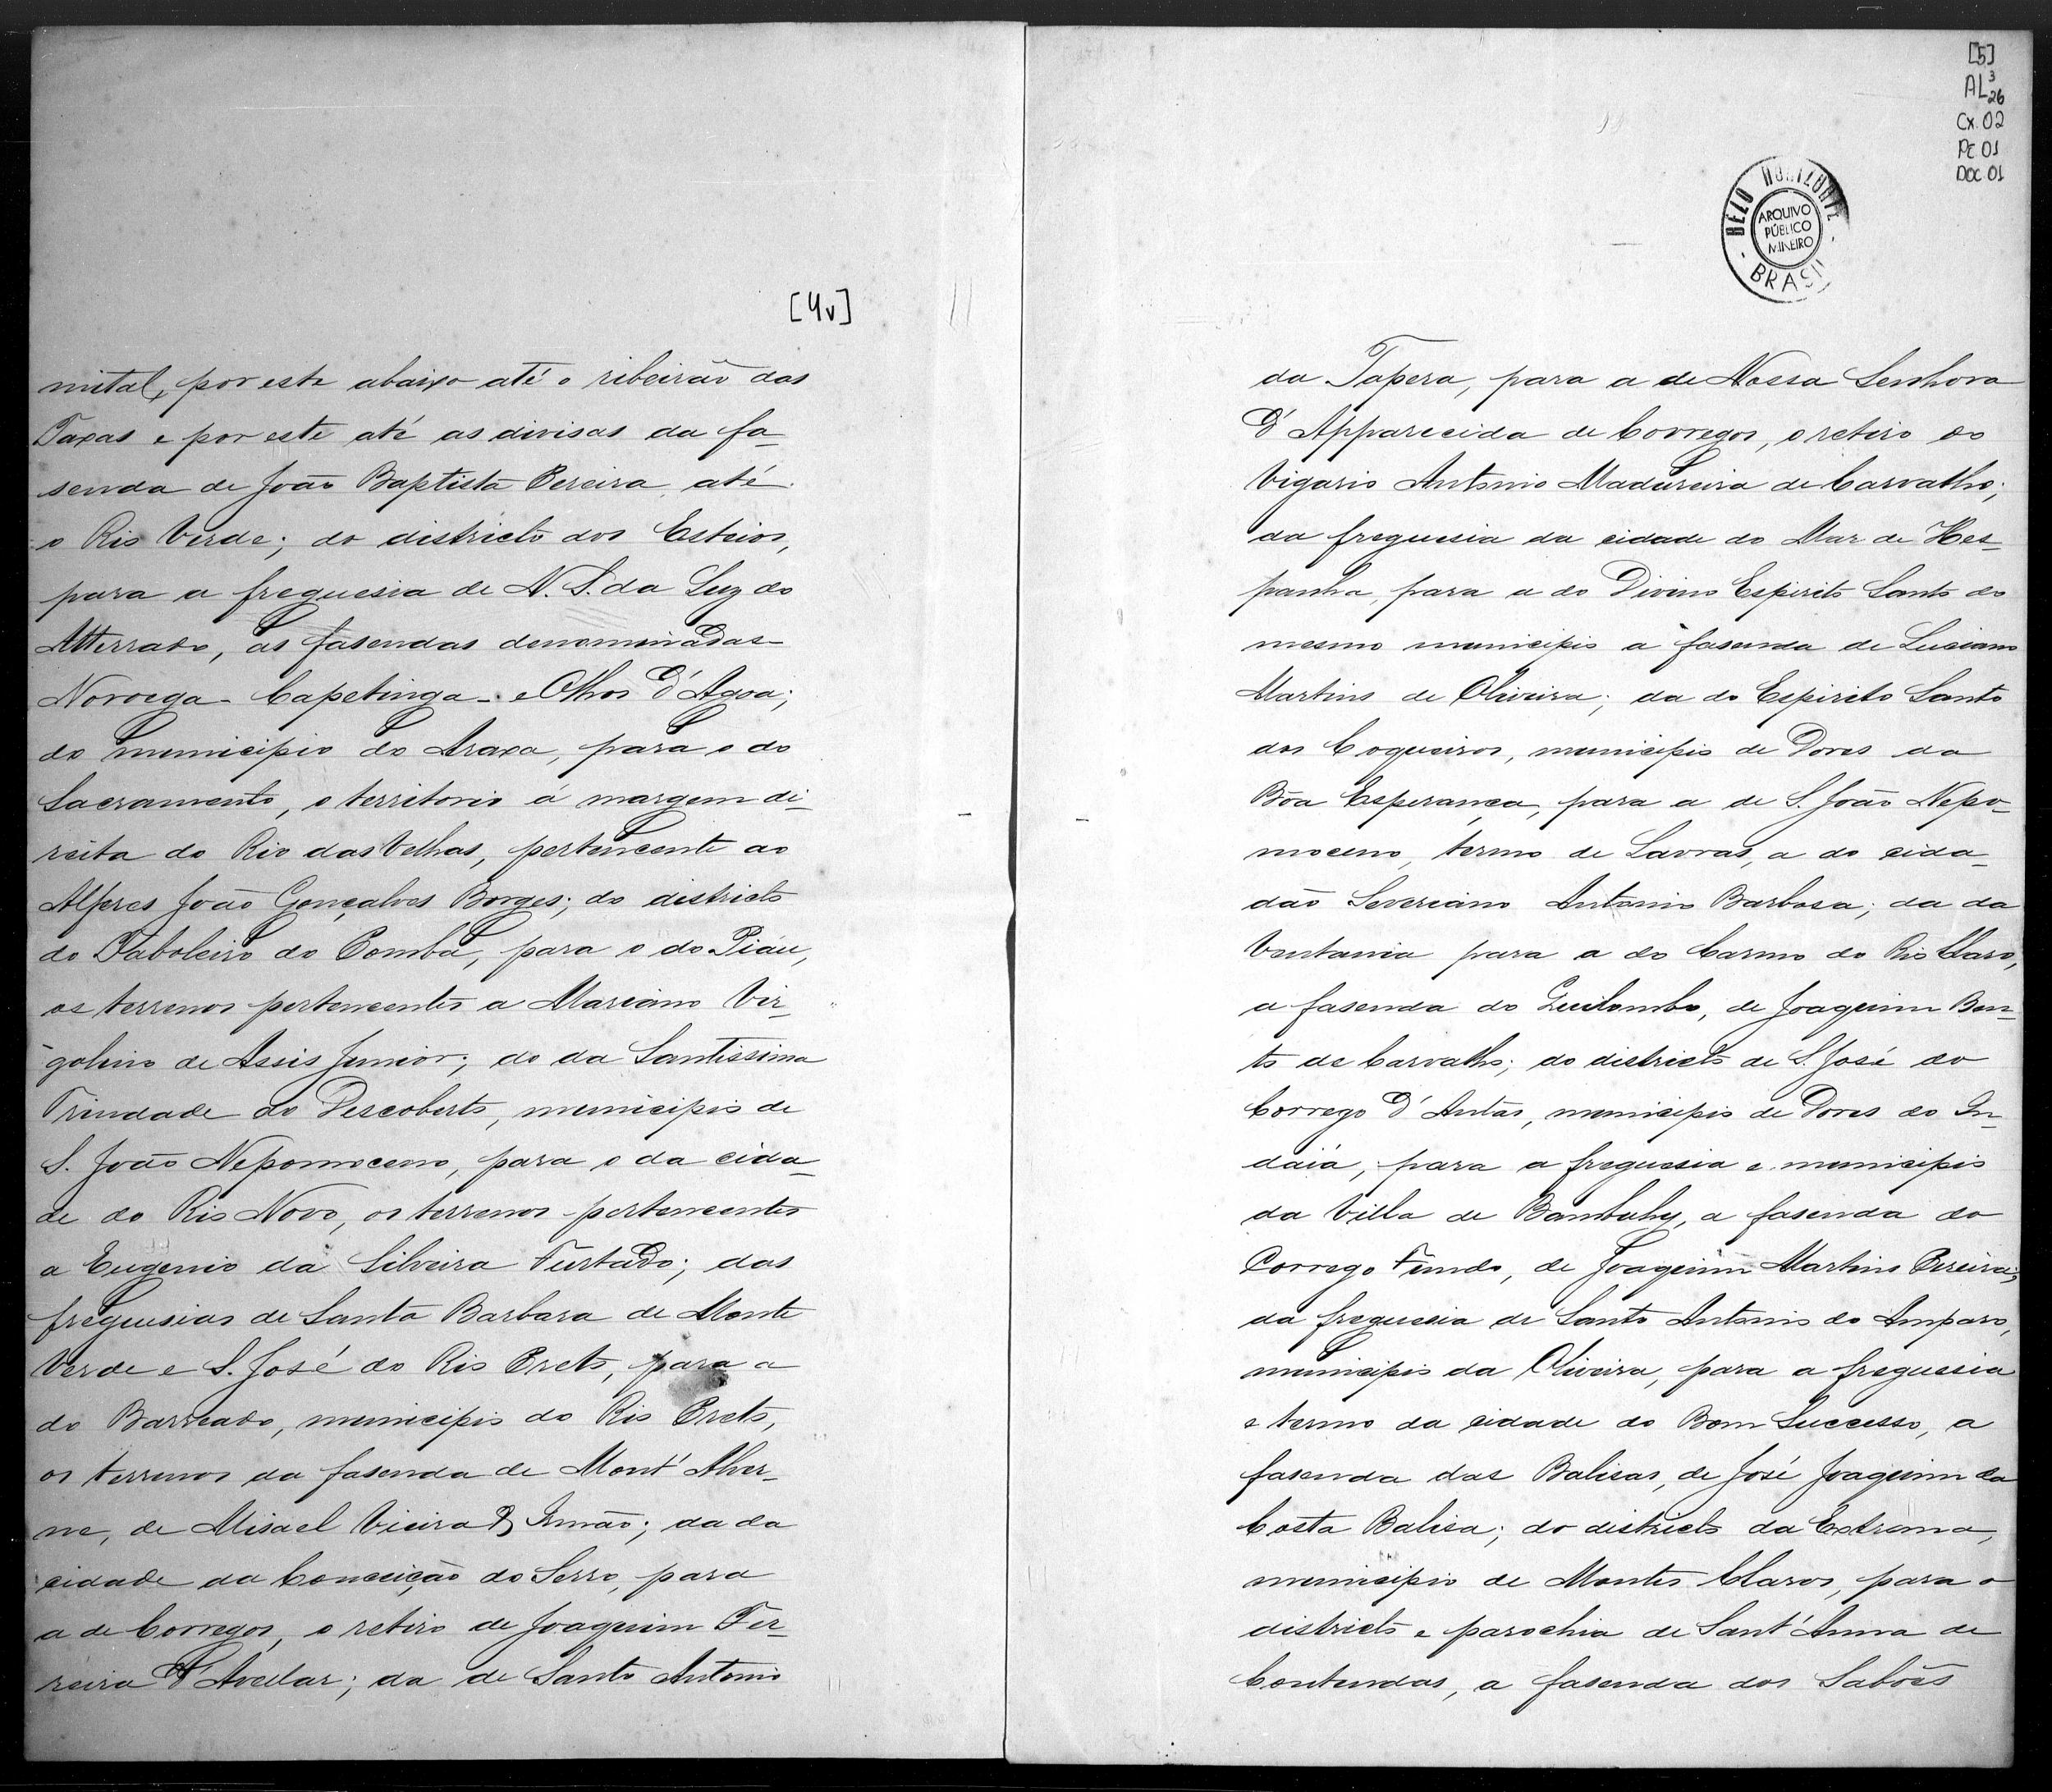 [4v]
mital, por este abaixo até o ribeirão das
Taxas e por este até as divisas da fa-
senda de João Baptista Pereira, até
o Rio Verde; do districto dos Esteios,
para a freguesia de N. S. da Luz do
Atterrado, as fasendas denominadas
Noroega - Capetinga - e Olhos D'Agoa;
do municipio do Araxa, para o do
Sacramento, o territorio á margem di-
reita do Rio das Velhas, pertencente ao
Alferes João Gonçalves Borges; do districto
do Taboleiro do Pomba, para o do Piáu,
os terrenos pertencentes a Marciano Vir-
golino de Assis Junior; do da Santissima
Trindade do Descoberto, municipio de
S. João Nepomoceno, para o da cida-
de do Rio Novo, os terrenos pertencentes
a Eugenio da Silveira Furtado; das
freguesias de Santa Barbara de Monte
Verde e S. José do Rio Preto, para a
do Barreado, municipio do Rio Preto,
os terrenos da fasenda de Mont'Alver-
ne, de Misael Vieira & Irmão; da da
cidade da Conceição do Serro, para
a de Corregos, o retiro de Joaquim Fer-
reira D'Avellar; da de Santo Antonio
[5]
AL3 26
Cx. 02
PC 01
DOC 01
BELO HORIZONTE
ARQUIVO
PÚBLICO
MINEIRO
- BRASIL -
da Tapera, para a de Nossa Senhora
D'Apparecida de Corregos, o retiro do
Vigario Antonio Madureira de Carvalho;
da freguesia da cidade do Mar de Hes-
panha, para a do Divino Espirito Santo do
mesmo municipio a fasenda de Luciano
Martins de Oliveira; da do Espirito Santo
dos Coqueiros, municipio de Dores da
Bôa Esperança, para a de S. João Nepo-
moceno, termo de Lavras, a do cida-
dão Severiano Antonio Barbosa; da da
Ventania para a do Carmo do Rio Claro,
a fasenda do Quilombo, de Joaquim Ben-
to de Carvalho; do districto de S. José do
Corrego D'Antas, municipio de Dores do In-
daiá, para a freguesia e municipio
da Villa de Bambuhy, a fasenda do
Corrego Fundo, de Joaquim Martins Pereira;
da freguesia de Santo Antonio do Amparo,
municipio da Oliveira, para a freguesia
e termo da cidade do Bom Successo, a
fasenda das Balisas, de José Joaquim da
Costa Balisa; do districto da Extrema,
municipio de Montes Claros, para o
districto e parochia de Sant'Anna de
Contendas, a fasenda dos Sabões